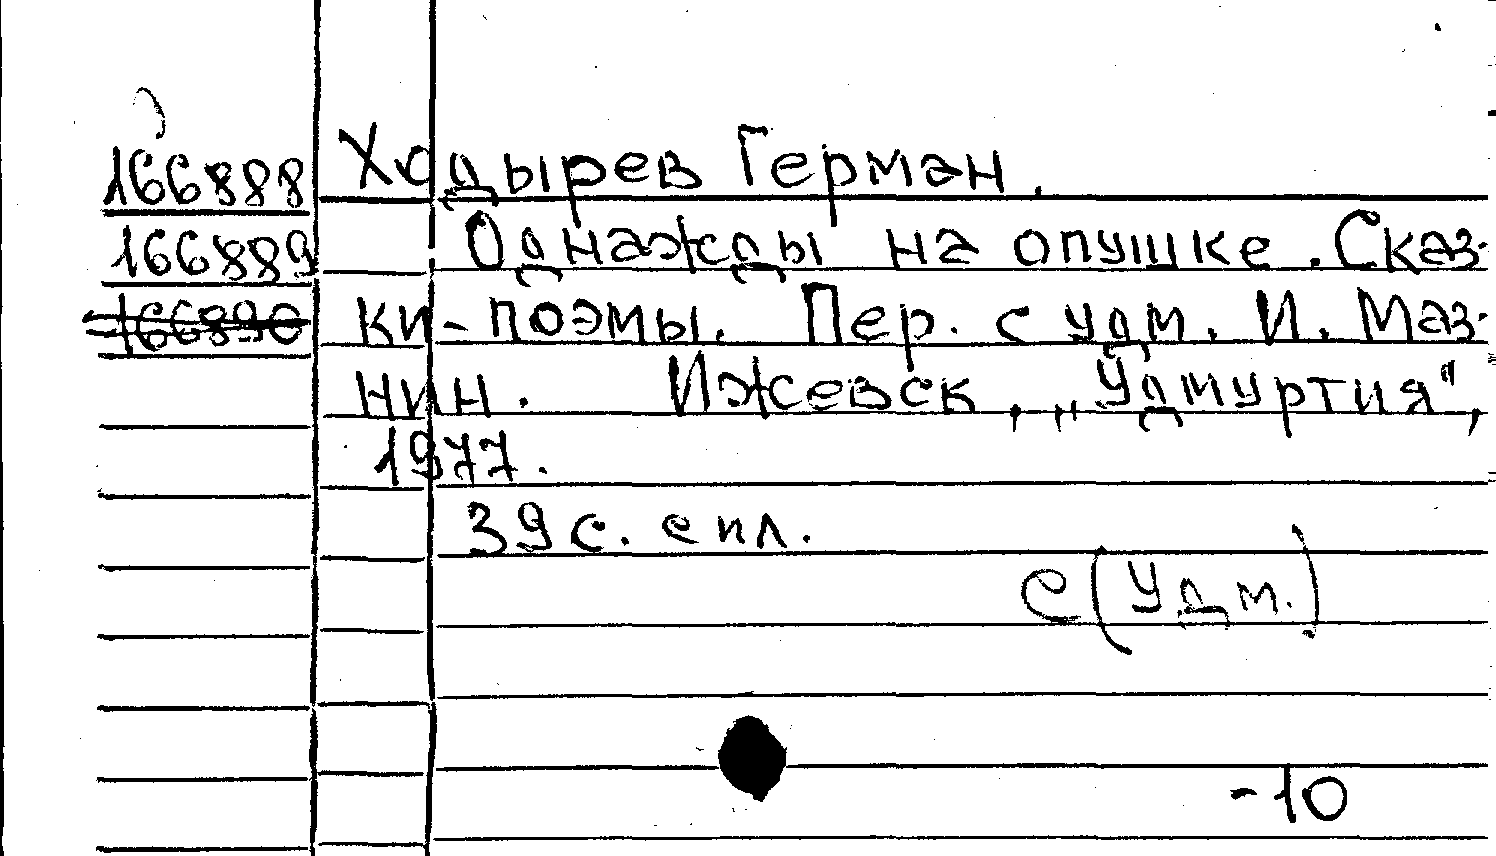 166888 Ходырев Герман.
166889 Однажды на опушке. Сказ-
166890 ки-поэмы. Пер. с удм. И. Маз-
нин. Ижевск, „Удмуртия",
1977.
39 с. с ил.
С(Удм.)
-10